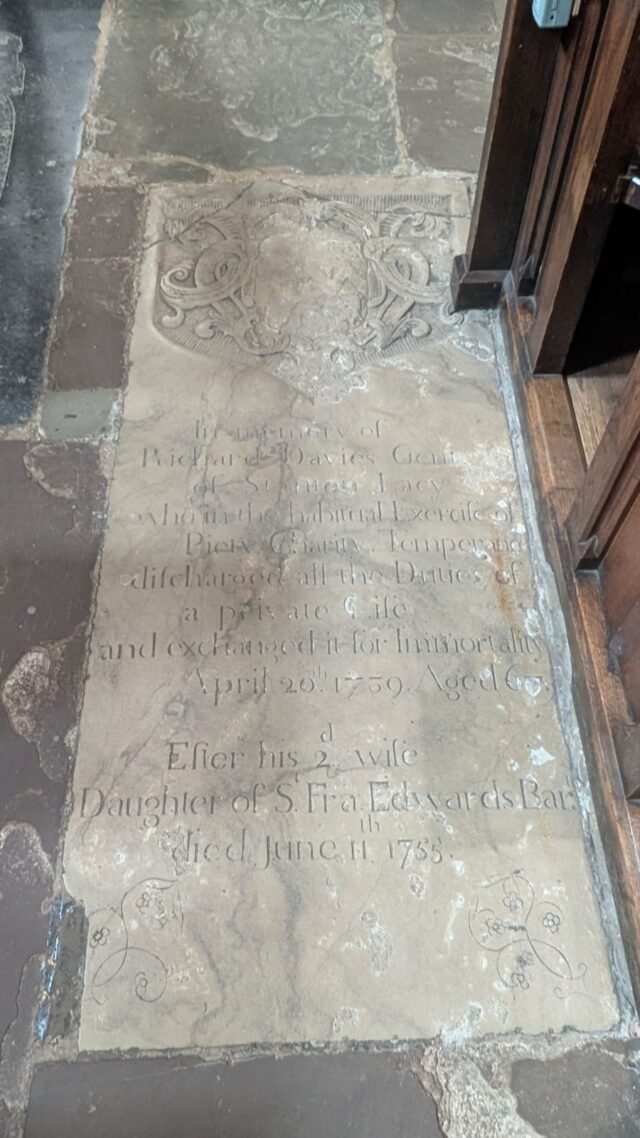 In memory of
Richard Davies Gent
of Stanton Lacy
who in the habitual Exercise of
Piety, Charity, Temperance
discharged all the Duties of
a private Life
and exchanged it for Immortality
April 20th. 1739. Aged
Ester his 2d. wife
Daughter of Sr. Fra. Edwards Bart.
died June 11th 1755.